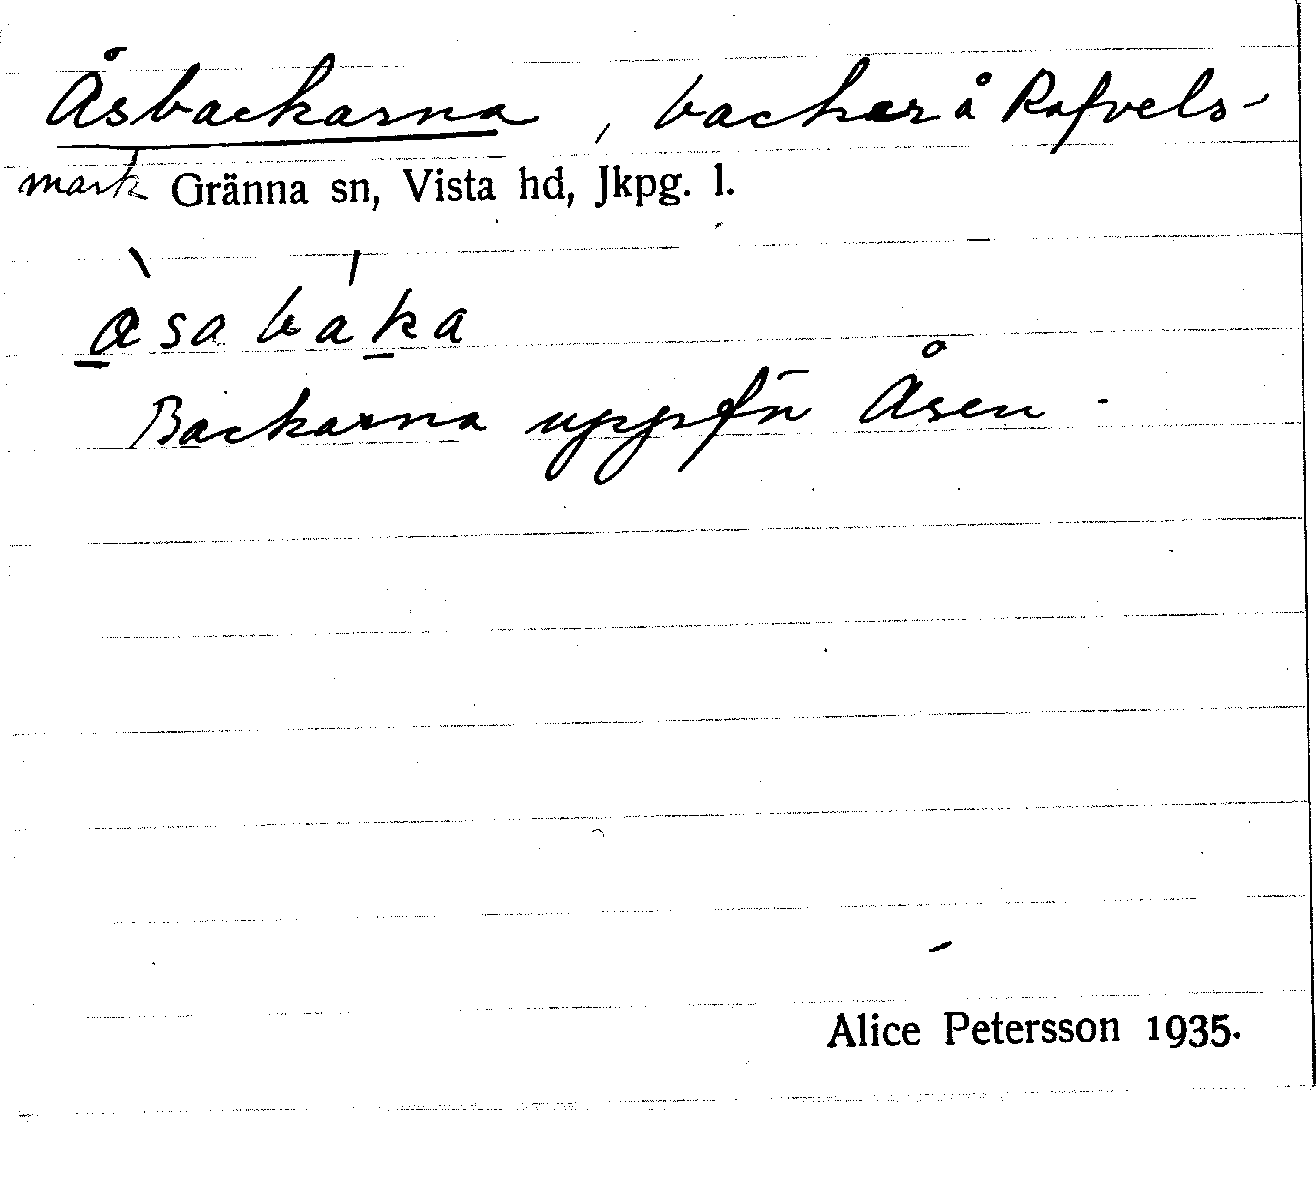 Åsbackarna, backar å Rafvels-
mark Gränna sn, Vista hd, Jkpg. l.
åsabaka
Backarna uppifrån Åsen.
Alice Petersson 1935.